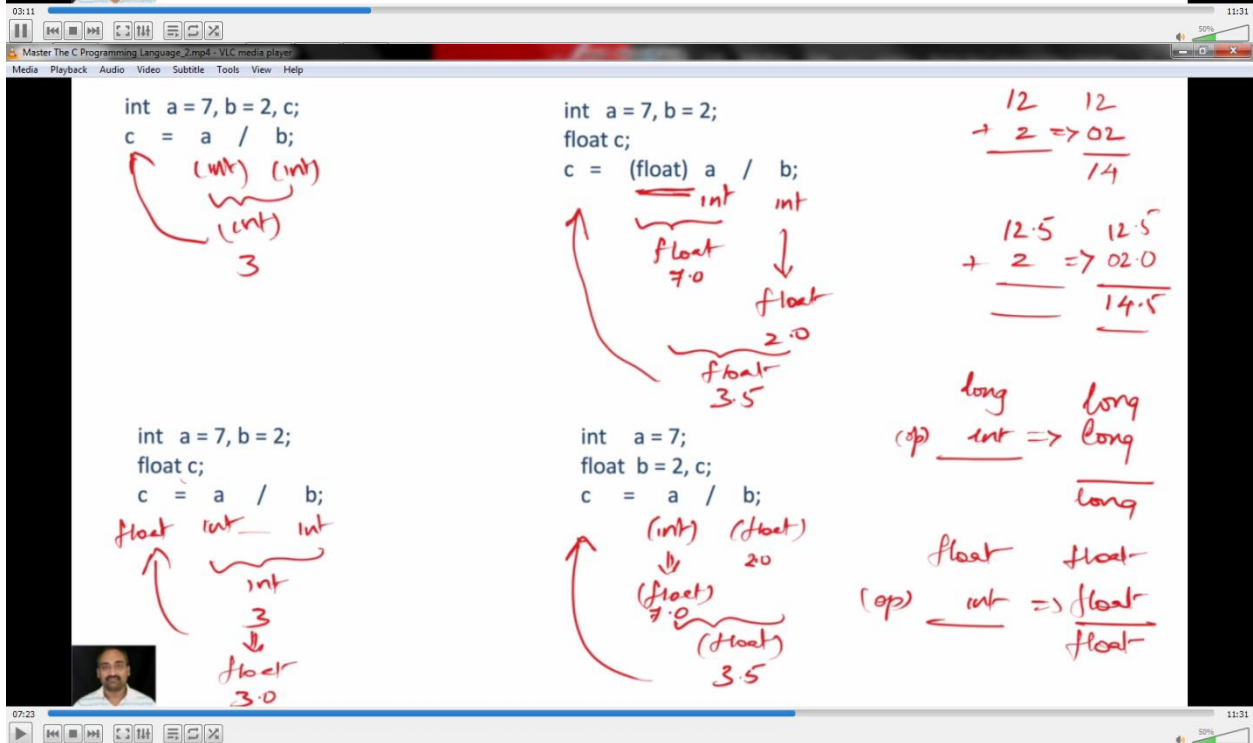 03:11 11:31
50%
Master The C Programming Language_2.mp4 - VLC media player
Media Playback Audio Video Subtitle Tools View Help
int a = 7, b = 2, c;
c = a / b;
(int) (int)
(int)
3
int a = 7, b = 2;
float c;
c = (float) a / b;
int int
float
7.0
float
2.0
float
3.5
12 12
+ 2 => 02
14
12.5 12.5
+ 2 => 02.0
14.5
int a = 7, b = 2;
float c;
c = a / b;
float int int
int
3
float
3.0
int a = 7;
float b = 2, c;
c = a / b;
(int) (float)
2.0
(float)
7.0
(float)
3.5
long long
(op) int => long
long
float float
(op) int => float
float
07:23 11:31
50%